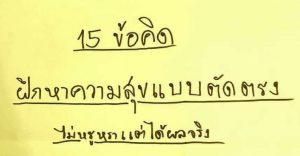 15 ข้อคิด
ฝึกหาความสุขแบบตัดตรง
ไม่หรูหราแต่ได้ผลจริง